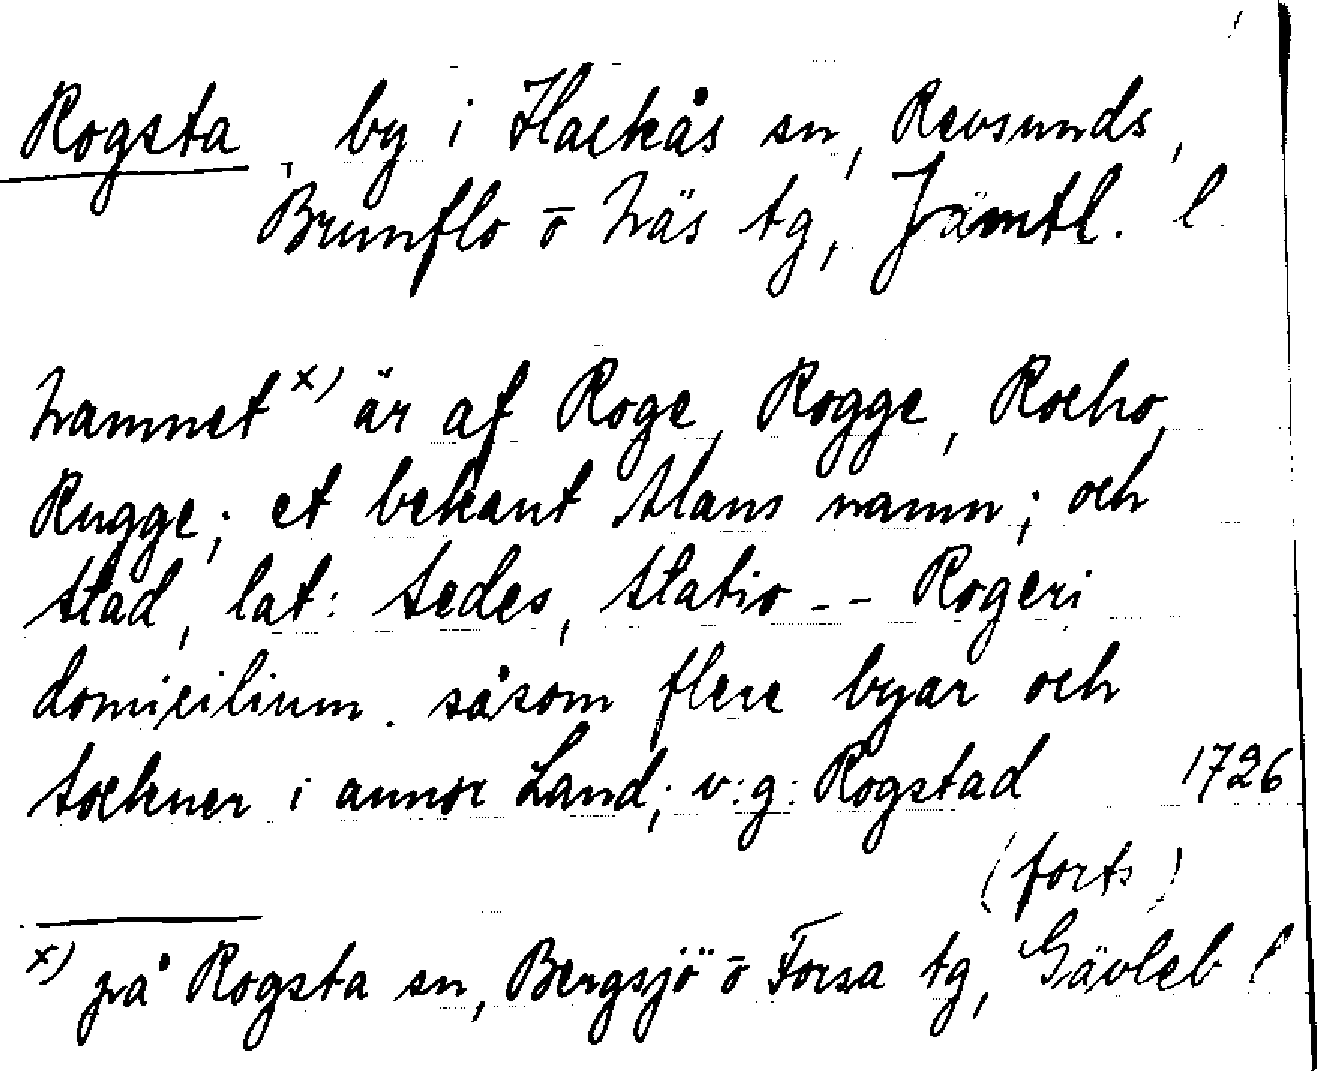 Rogsta, by i Hackås sn, Revsunds,
Brunflo ō Näs tg, Jämtl. l
Namnet x) är af Roge, Rogge, Rocho,
Rugge; et bekant Mans namn; och
stad, lat: sedes, statio -- Rogeri
domicilium. såsom flere byar och
sockner i annor Land; v:g: Rogstad 1726
(forts)
x) på Rogsta sn, Bergsjö ō Forsa tg, Gävleb l